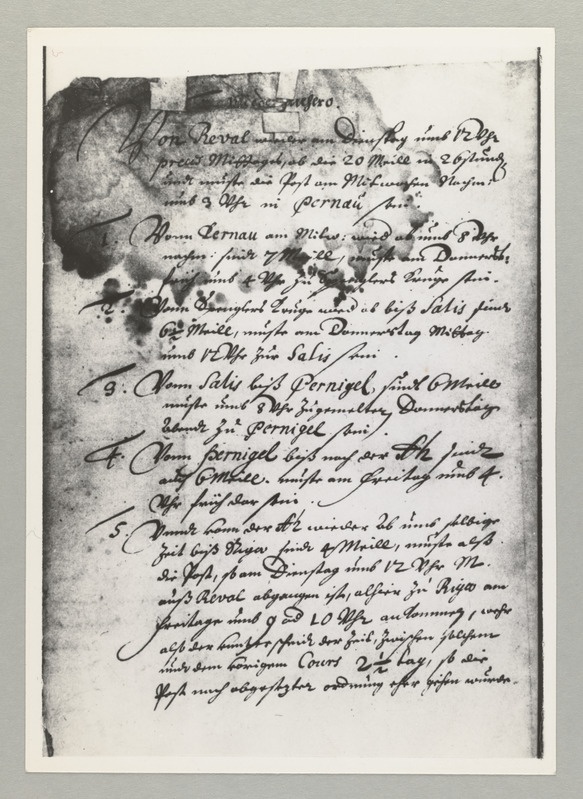 Von Reval wieder am Dienstag umb 12 Uhr
precis Mittages, ob die 20 Meill in 26 stund,
und müste die Post am Mitwochen Nachm:
umb 3 Uhr in Pernau sein.
1. Vonn Pernau am Mitw: wird ab umb 8 Uhr
nachm: sindt 7 Meill, müste am Donnerst:
früh umb 4 Uhr zu Spenglers Kruge sein.
2. Vonn Spenglers Kruge wird ab biß Salis sindt
6 Meill, müste am Donnerstag Mittag
umb 12 Uhr zur Salis sein.
3. Vonn Salis biß Pernigel, sindt 6 Meill
müste umb 8 Uhr zugemelter Donnerstag
Abendt zu Pernigel sein.
4. Vonn Pernigel biß nach der Ah sindt
auch 6 Meill. müste am Freitag umb 4.
Uhr früh dar sein.
5. Vundt vonn der Ah wieder ab umb selbige
Zeit biß Riga sindt 4 Meill, müste alß
die Post, so am Dienstag umb 12 Uhr M.
auß Reval abgangen ist, alhier zu Riga am
Freitage umb 9 ad 10 Uhr ankommen, wehr
also der unterscheidt der Zeit, zwischen solchem
und dem vorigem Cours 2 1/2 tag, so die
Post nach abgesetzter ordnung eher gehen wurde.